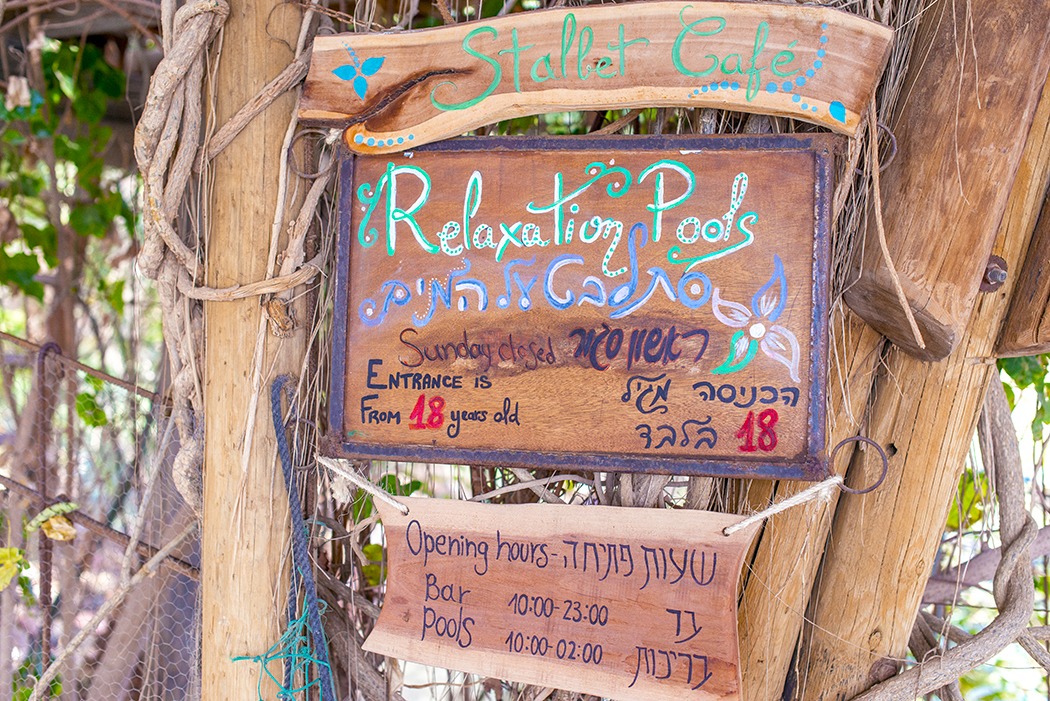 Stalbet Café
Relaxation Pools
סתלבט על המים
Sunday closed ראשון סגור
ENTRANCE IS
FROM 18 years old
הכניסה מגיל
18 בלבד
Opening hours - שעות פתיחה
Bar 10:00-23:00 בר
Pools 10:00-02:00 בריכות